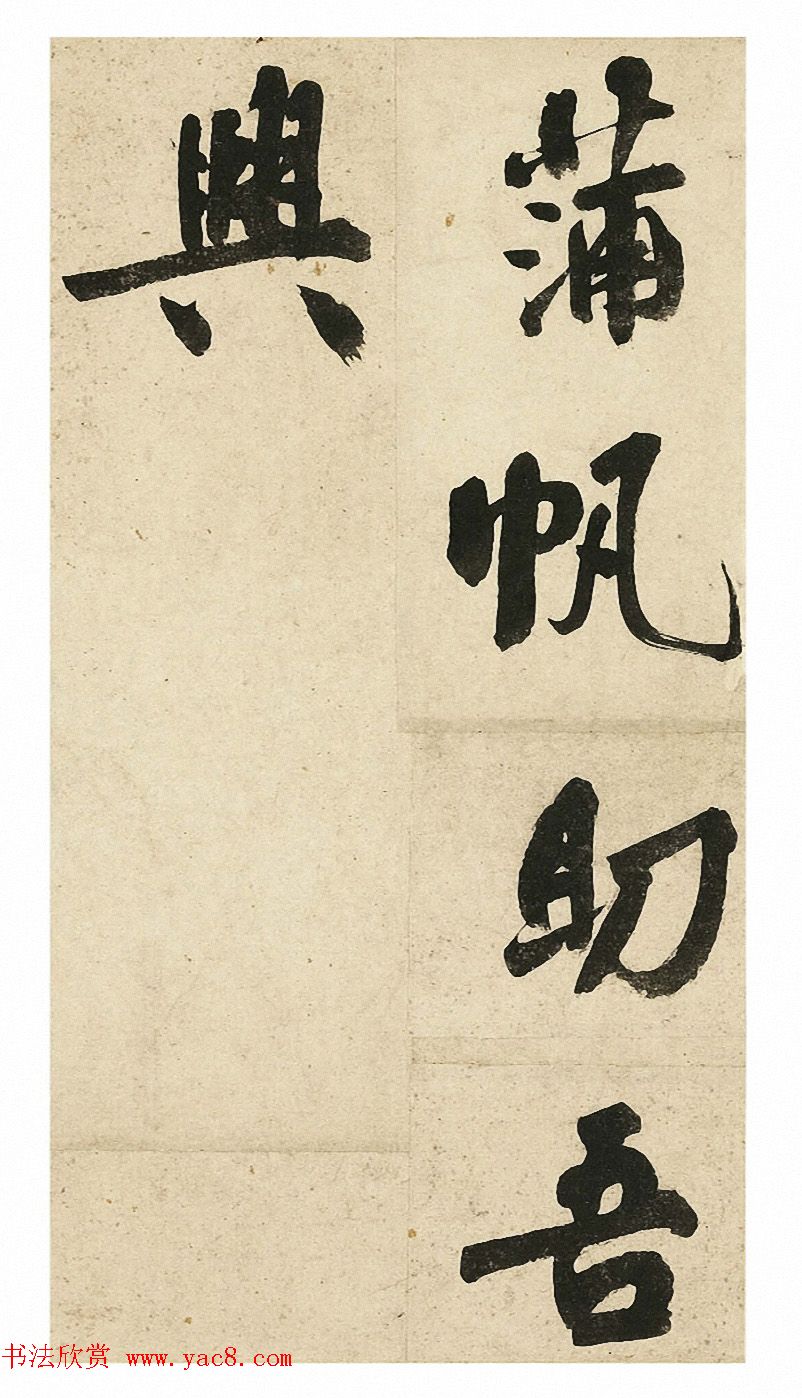 蒲帆助吾
興
书法欣赏 www.yac8.com